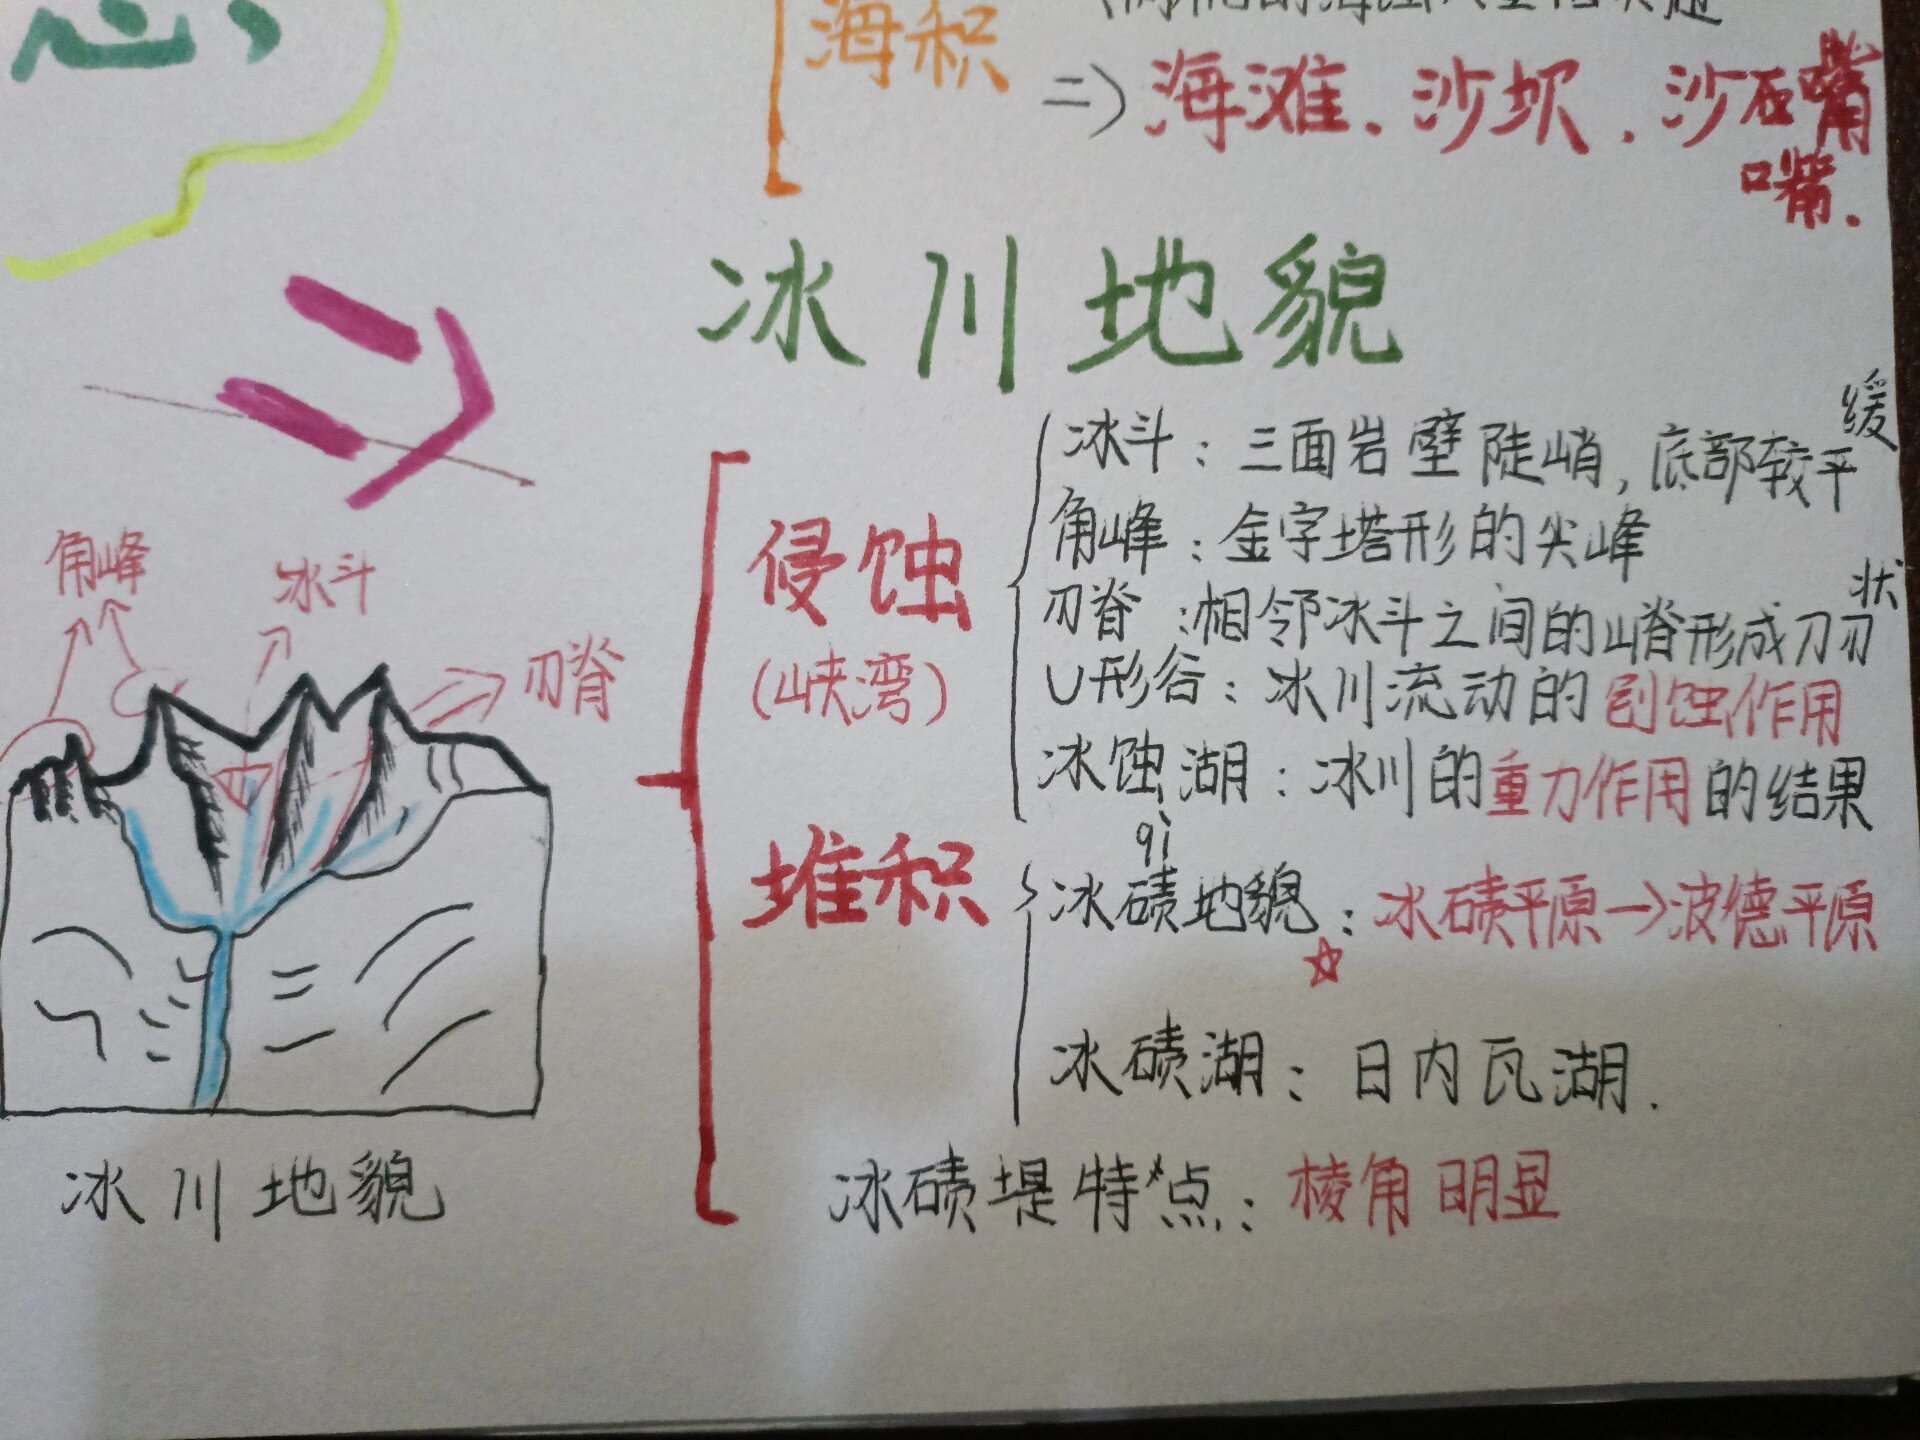 海积
=) 海滩、沙坝、沙嘴
嘴.
冰川地貌
侵蚀
(峡湾)
冰斗:三面岩壁陡峭,底部较平缓
角峰:金字塔形的尖峰
刃脊:相邻冰斗之间的山脊形成刀刃状
U形谷:冰川流动的刨蚀作用
冰蚀湖:冰川的重力作用的结果
堆积
qì
冰碛地貌:冰碛平原→波德平原
☆
冰碛湖:日内瓦湖.
冰碛堤特点:棱角明显
角峰
冰斗
刃脊
冰川地貌